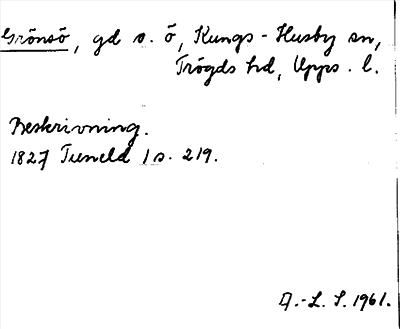 Grönsö, gd o. ö, Kungs-Husby sn,
Trögds hd, Upps. l.
Beskrivning.
1827 Tuneld 1 s. 219.
A.-L. S. 1961.